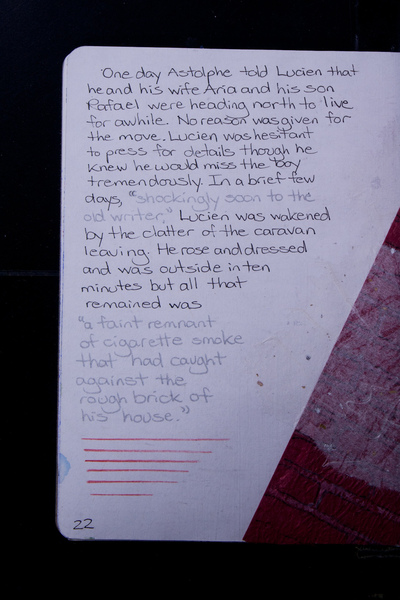 One day Astolphe told Lucien that
he and his wife Aria and his son
Rafael were heading north to live
for awhile. No reason was given for
the move. Lucien was hesitant
to press for details though he
knew he would miss the boy
tremendously. In a brief few
days, "shockingly soon to the
old writer," Lucien was wakened
by the clatter of the caravan
leaving. He rose and dressed
and was outside in ten
minutes but all that
remained was
"a faint remnant
of cigarette smoke
that had caught
against the
rough brick of
his house."
22